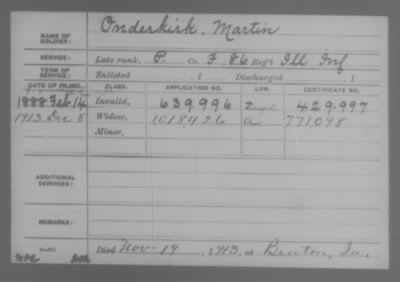 NAME OF SOLDIER: Onderkirk, Martin
SERVICE: Late rank, P. Co. F, 86 Reg't Ill Inf
TERM OF SERVICE: Enlisted , 1 Discharged , 1
DATE OF FILING. CLASS. APPLICATION NO. LAW. CERTIFICATE NO.
1888 Feb 14 Invalid, 639,996 429,997
1913 Dec 5 Widow, 1018426 a 771,098
Minor,
ADDITIONAL SERVICES:
REMARKS:
Died Nov-19, 1913, at Benton, Ia.